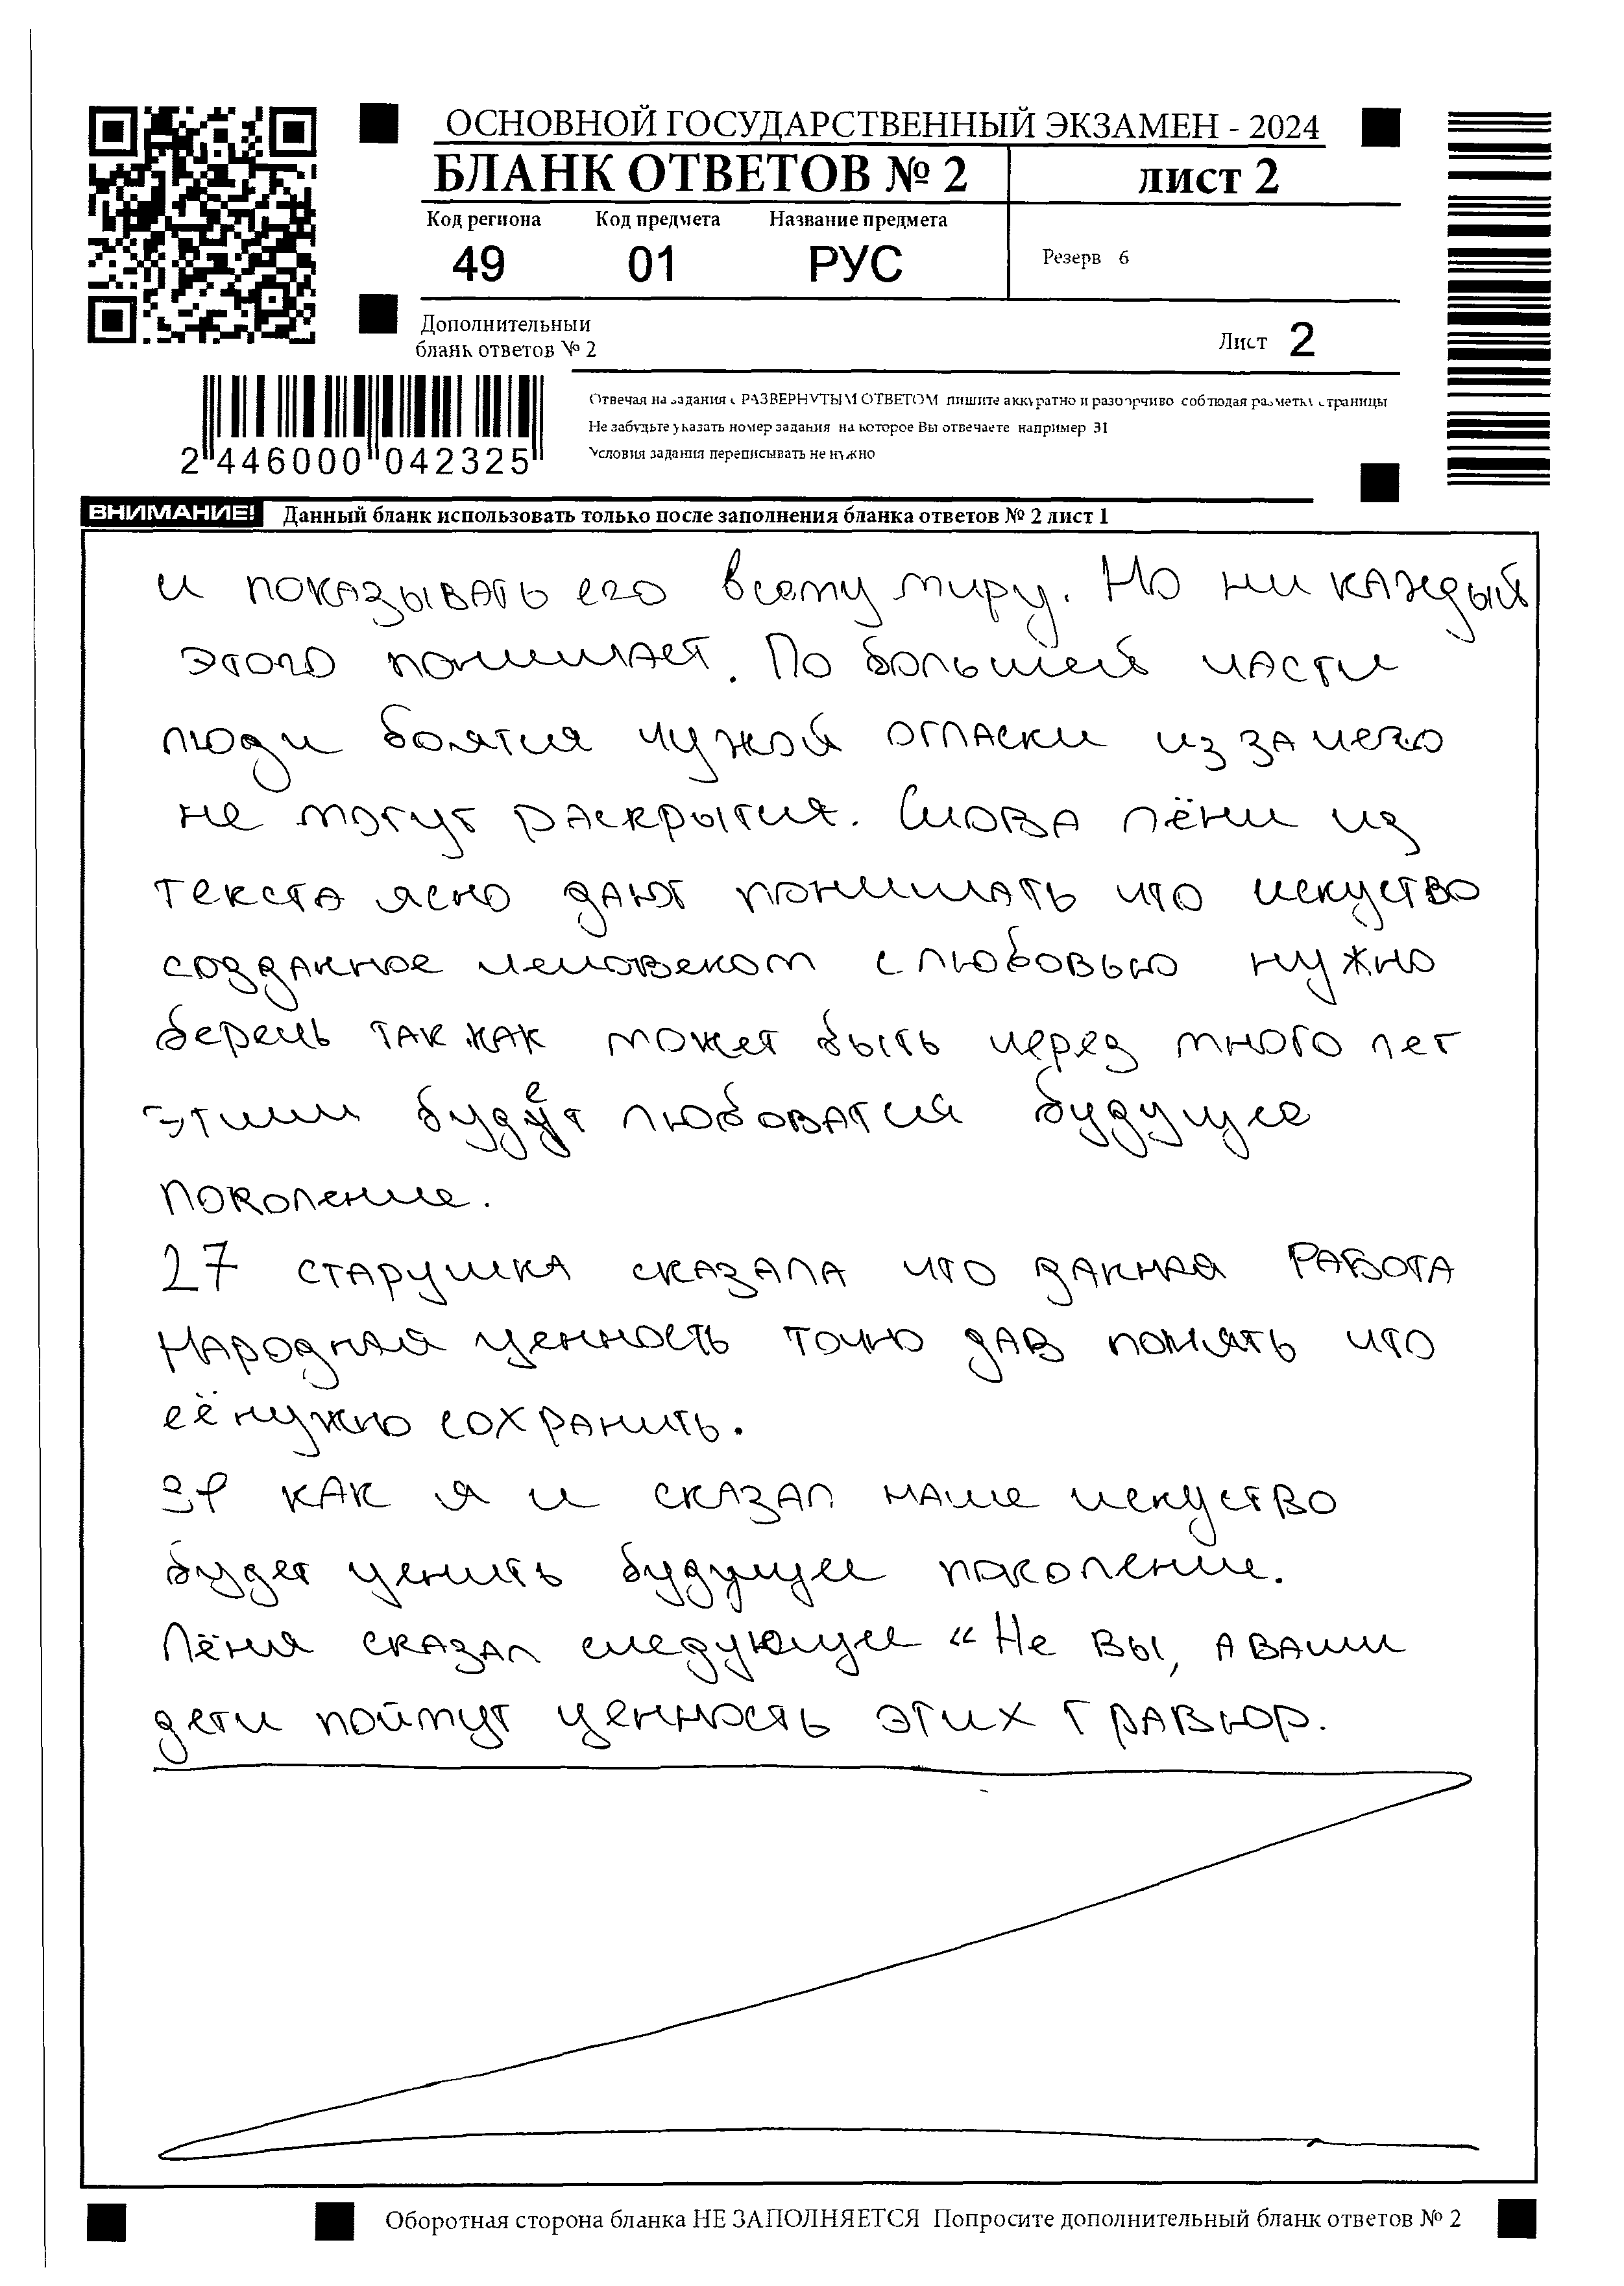 ОСНОВНОЙ ГОСУДАРСТВЕННЫЙ ЭКЗАМЕН - 2024
БЛАНК ОТВЕТОВ № 2
лист 2
Код региона Код предмета Название предмета
49 01 РУС
Резерв 6
Дополнительный
бланк ответов № 2
Лист 2
Отвечая на задания с РАЗВЕРНУТЫМ ОТВЕТОМ пишите аккуратно и разборчиво соблюдая разметку страницы
Не забудьте указать номер задания на которое Вы отвечаете например 31
Условия задания переписывать не нужно
2 446000 042325
ВНИМАНИЕ! Данный бланк использовать только после заполнения бланка ответов № 2 лист 1
и показывать его всему миру. Но ни каждый
этого понимает. По большей части
люди боятся чужой огласки из за чего
не могут раскрытся. Слова лёни из
текста ясно дают понимать что искуство
созданное человеком с любовью нужно
беречь так как может быть черед много лет
этим будет любоватся будуще
поколение.
27 старушка сказала что данная работа
народная ценность точно дав понять что
её нужно сохранить.
как я и сказал наше искуство
будет ценить будущее поколение.
Лёня сказал следующее «Не вы, а ваши
дети поймут ценность этих гравюр.
Оборотная сторона бланка НЕ ЗАПОЛНЯЕТСЯ Попросите дополнительный бланк ответов № 2